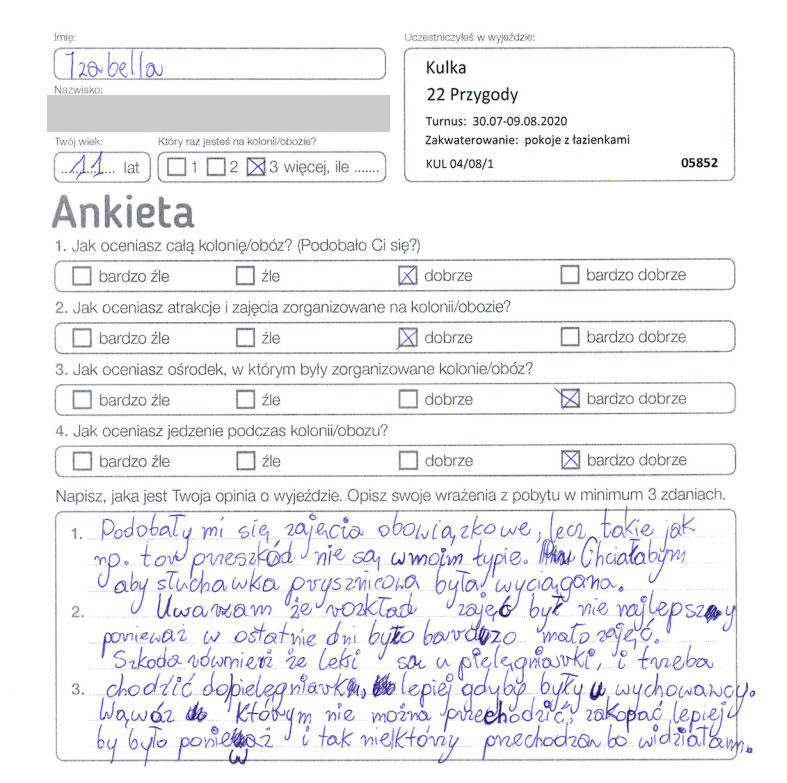 Imię:
Izabella
Nazwisko:
Twój wiek:
11 lat
Który raz jesteś na kolonii/obozie?
1 2 3 więcej, ile .......
Uczestniczyłeś w wyjeździe:
Kulka
22 Przygody
Turnus: 30.07-09.08.2020
Zakwaterowanie: pokoje z łazienkami
KUL 04/08/1 05852
Ankieta
1. Jak oceniasz całą kolonię/obóz? (Podobało Ci się?)
bardzo źle źle dobrze bardzo dobrze
2. Jak oceniasz atrakcje i zajęcia zorganizowane na kolonii/obozie?
bardzo źle źle dobrze bardzo dobrze
3. Jak oceniasz ośrodek, w którym były zorganizowane kolonie/obóz?
bardzo źle źle dobrze bardzo dobrze
4. Jak oceniasz jedzenie podczas kolonii/obozu?
bardzo źle źle dobrze bardzo dobrze
Napisz, jaka jest Twoja opinia o wyjeździe. Opisz swoje wrażenia z pobytu w minimum 3 zdaniach.
1. Podobały mi się zajęcia obowiązkowe, lecz takie jak
np. tor przeszkód nie są w moim typie. Chciałabym
aby słuchawka prysznicowa była wyciągana.
2. Uważam że rozkład zajęć był nie najlepszy
ponieważ w ostatnie dni było bardzo mało zajęć.
Szkoda również że leki są u pielęgniarki, i trzeba
3. chodzić do pielęgniarki, lepiej gdyby były u wychowawcy.
Wąwóz którym nie można przechodzić, zakopać lepiej
by było ponieważ i tak niektórzy przechodzą bo widziałam.